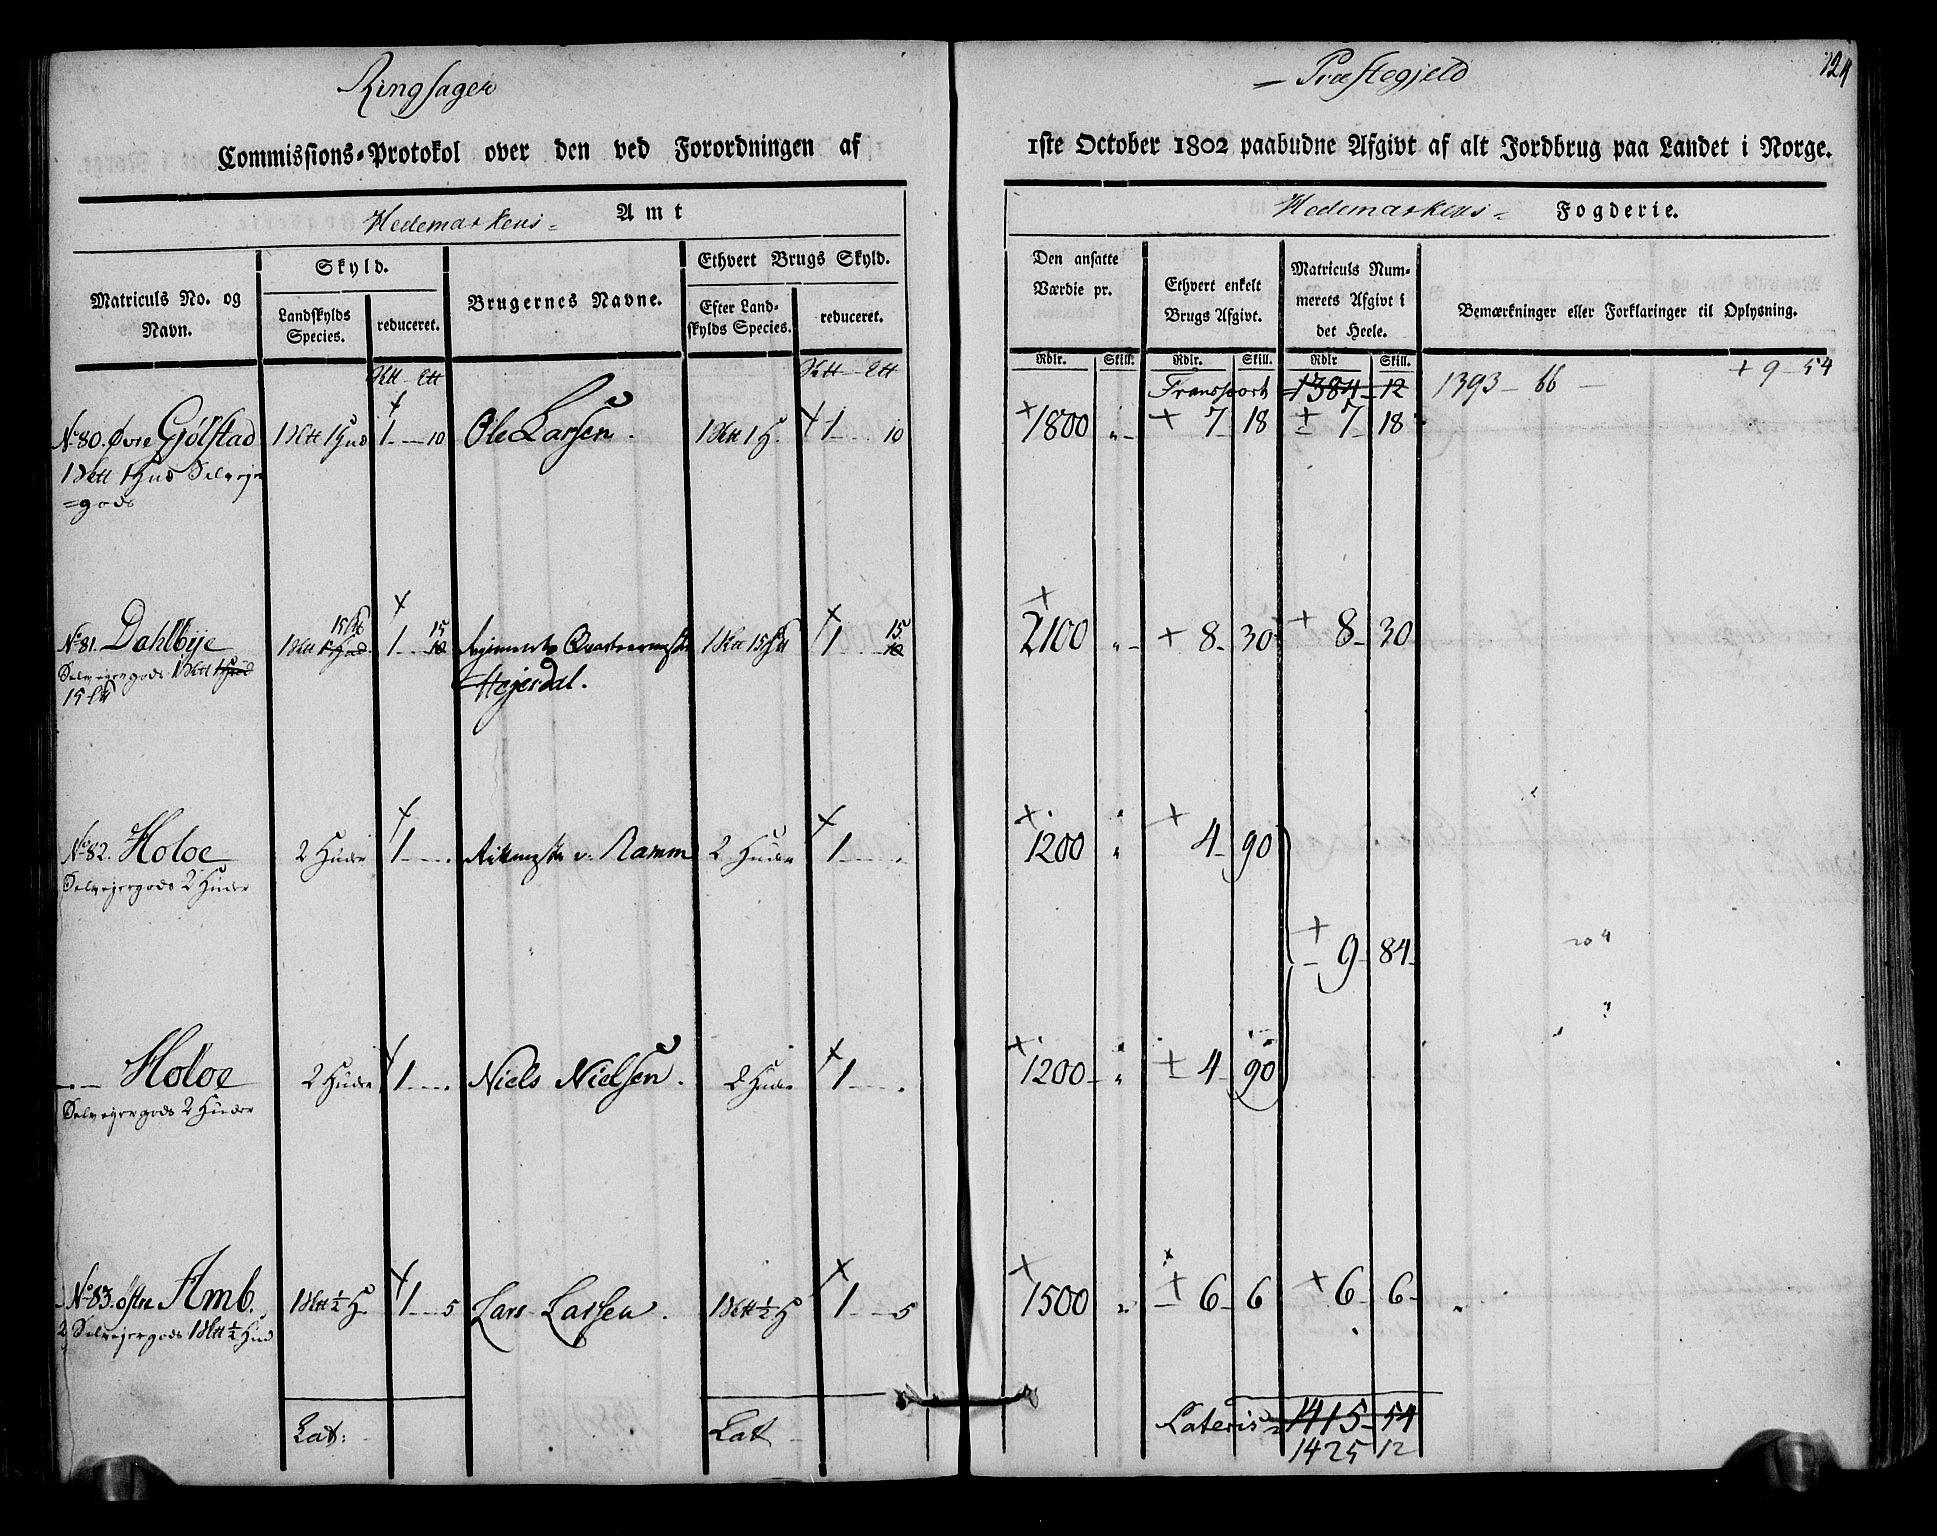 Ringsager
– Præstegjeld
124
Commissions-Protokol over den ved Forordningen af
1ste October 1802 paabudne Afgivt af alt Jordbrug paa Landet i Norge.
Hedemarkens Amt
Hedemarkens Fogderie.
Matriculs No. og Navn.
Skyld.
Landskylds Species.
reduceret.
Brugernes Navne.
Ethvert Brugs Skyld.
Efter Landskylds Species.
reduceret.
Den ansatte Værdie pr.
Ethvert enkelt Brugs Afgivt.
Matriculs Nummerets Afgivt i det Heele.
Bemærkninger eller Forklaringer til Oplysning.
Rdlr. Skill. Rdlr. Skill. Rdlr Skill.
Transport 1384 12 1393 – 66 – + 9 – 54
No 80. Øvre Gjølstad 1 Hud 1 – 10 Ole Larsen. 1 H. 1 – 10 1800 „ 7 18 7 18
1 Hud Selvejer
=gods
No 81. Dahlbye 1 – 15 Regiments Qvarteermester 1 – 15 2100 „ 8 30 8 30
Selvejergods
Hejerdal.
15
No 82. Holoe 2 Huder 1 – „ v. Ramm 2 Huder 1 – „ 1200 „ 4 90
Selvejergods 2 Huder
9 84
– – Holoe 2 Huder 1 – „ Niels Nielsen. 2 Huder 1 – „ 1200 „ 4 90
Selvejergods 2 Huder
No 83. østre Amb. ½ H. 1 – 5 Lars Larsen. ½ H 1 – 5 1500 „ 6 6 6 6
Selvejergods ½ Hud
Lat: Lat Lateris 1415 54
1425 12